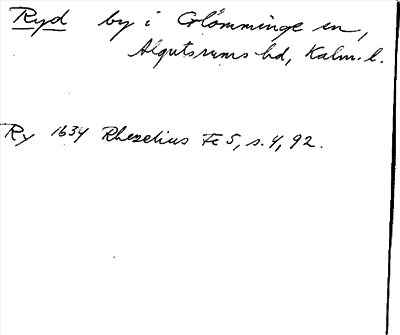 Ryd by i Glömminge sn,
Algutsrums hd, Kalm. l.
Ry 1634 Rhezelius Fc 5, s. 4, 92.